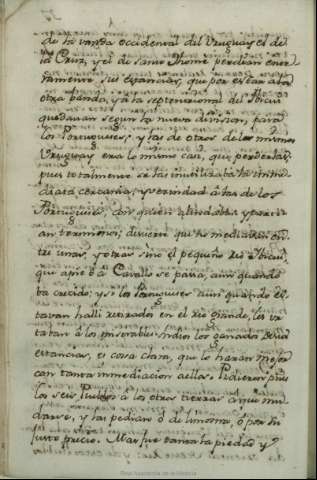 de la vanda occidental del Uruguay es de
la Cruz, y el de Santo Thomé perdian ente-
ramente sus estancias, que por estar a la
otra banda, y a la septentrional del Ibicui
quedavan segun la nueva division, para
los Portugueses, y las de otros de los mismos
Uruguay era lo mismo casi, que perderlas,
pues totalmente se las inutilizaba la inme-
diata cercania, y vecindad a las de los
Portugueses, con quien alindaba y partì-
an terminos; sin que mediasse en-
tre unas, y otras sino el pequeño rio Ibicui,
que a pie ò a Cavallo se passa, aun quando
va crecido; y si los Portugueses aun quando es-
tavan halli retirados en el rio grande, les ro-
baban a los miserables Indios los ganados de sus
estancias, es cosa clara, que lo harian mejor
con tanta inmediacion a ellas. Pidieron pues
los seis Pueblos a los otros tierras a que mu-
darse, y las pedian ò de limosna, ò por su
justo precio. Mas fue tanta la piedad y
Real Academia de la Historia